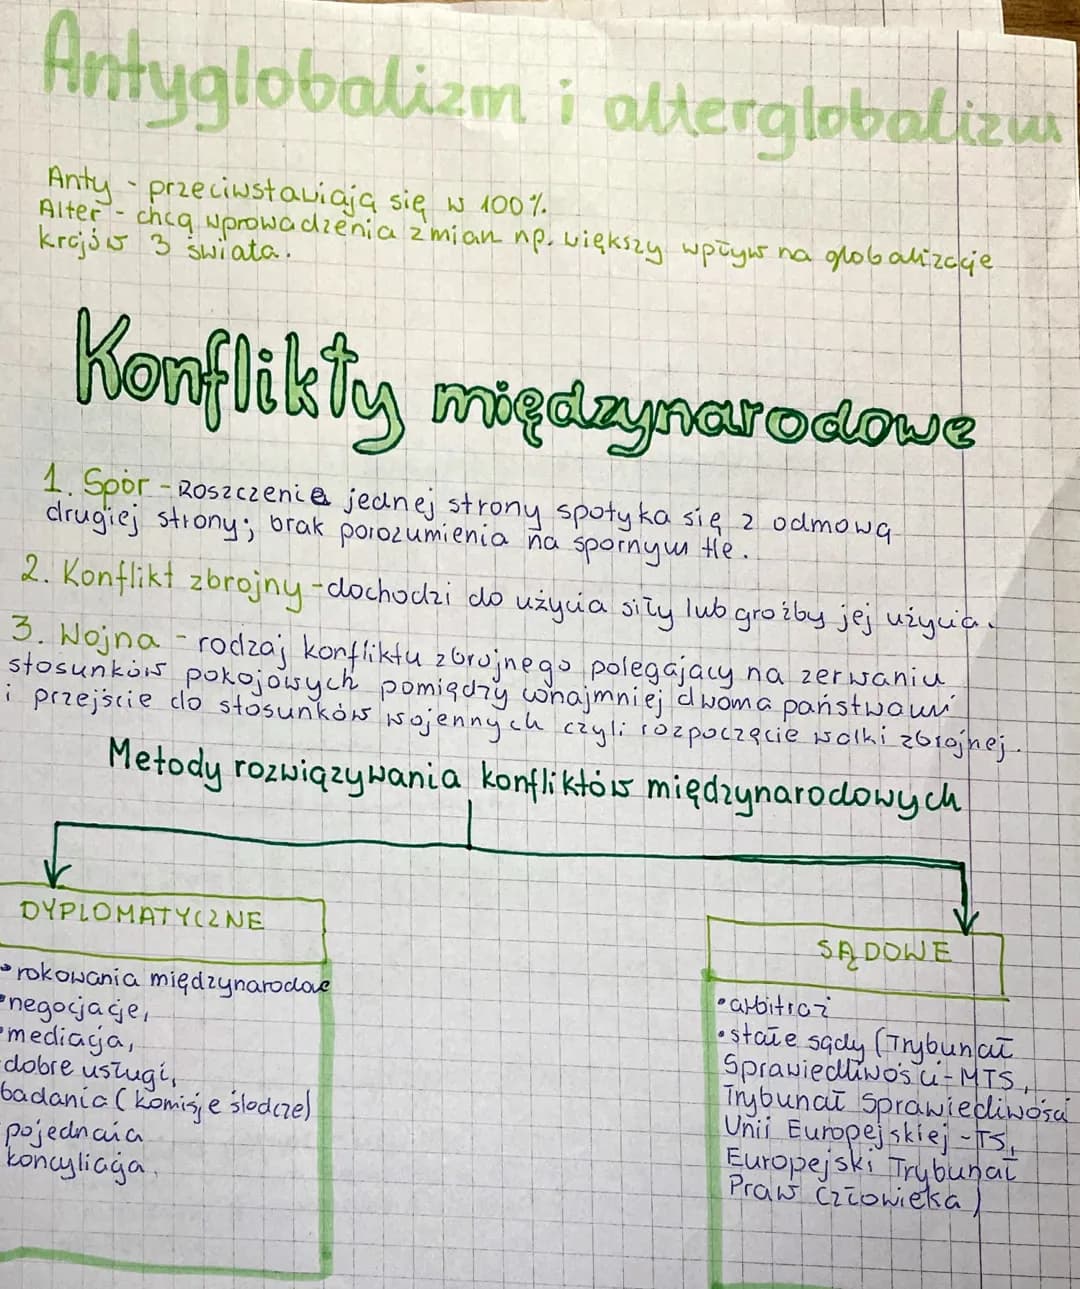 Antyglobalizm i alterglobalizm
Anty - przeciwstawiają się w 100%.
Alter - chcą wprowadzenia zmian np. większy wpływ na globalizację
krajów 3 świata.
Konflikty międzynarodowe
1. Spór - Roszczenie jednej strony spotyka się z odmową
drugiej strony; brak porozumienia na spornym tle.
2. Konflikt zbrojny - dochodzi do użycia siły lub groźby jej użycia.
3. Wojna - rodzaj konfliktu zbrojnego polegający na zerwaniu
stosunków pokojowych pomiędzy conajmniej dwoma państwami
i przejście do stosunków wojennych czyli rozpoczęcie walki zbrojnej.
Metody rozwiązywania konfliktów międzynarodowych
DYPLOMATYCZNE
• rokowania międzynarodowe
• negocjacje,
• mediacja,
dobre usługi,
badania (komisje śledcze)
pojednania
koncyliacja.
SĄDOWE
• arbitraż
• stałe sądy (Trybunał
Sprawiedliwości - MTS,
Trybunał Sprawiedliwości
Unii Europejskiej - TS,
Europejski Trybunał
Praw Człowieka)